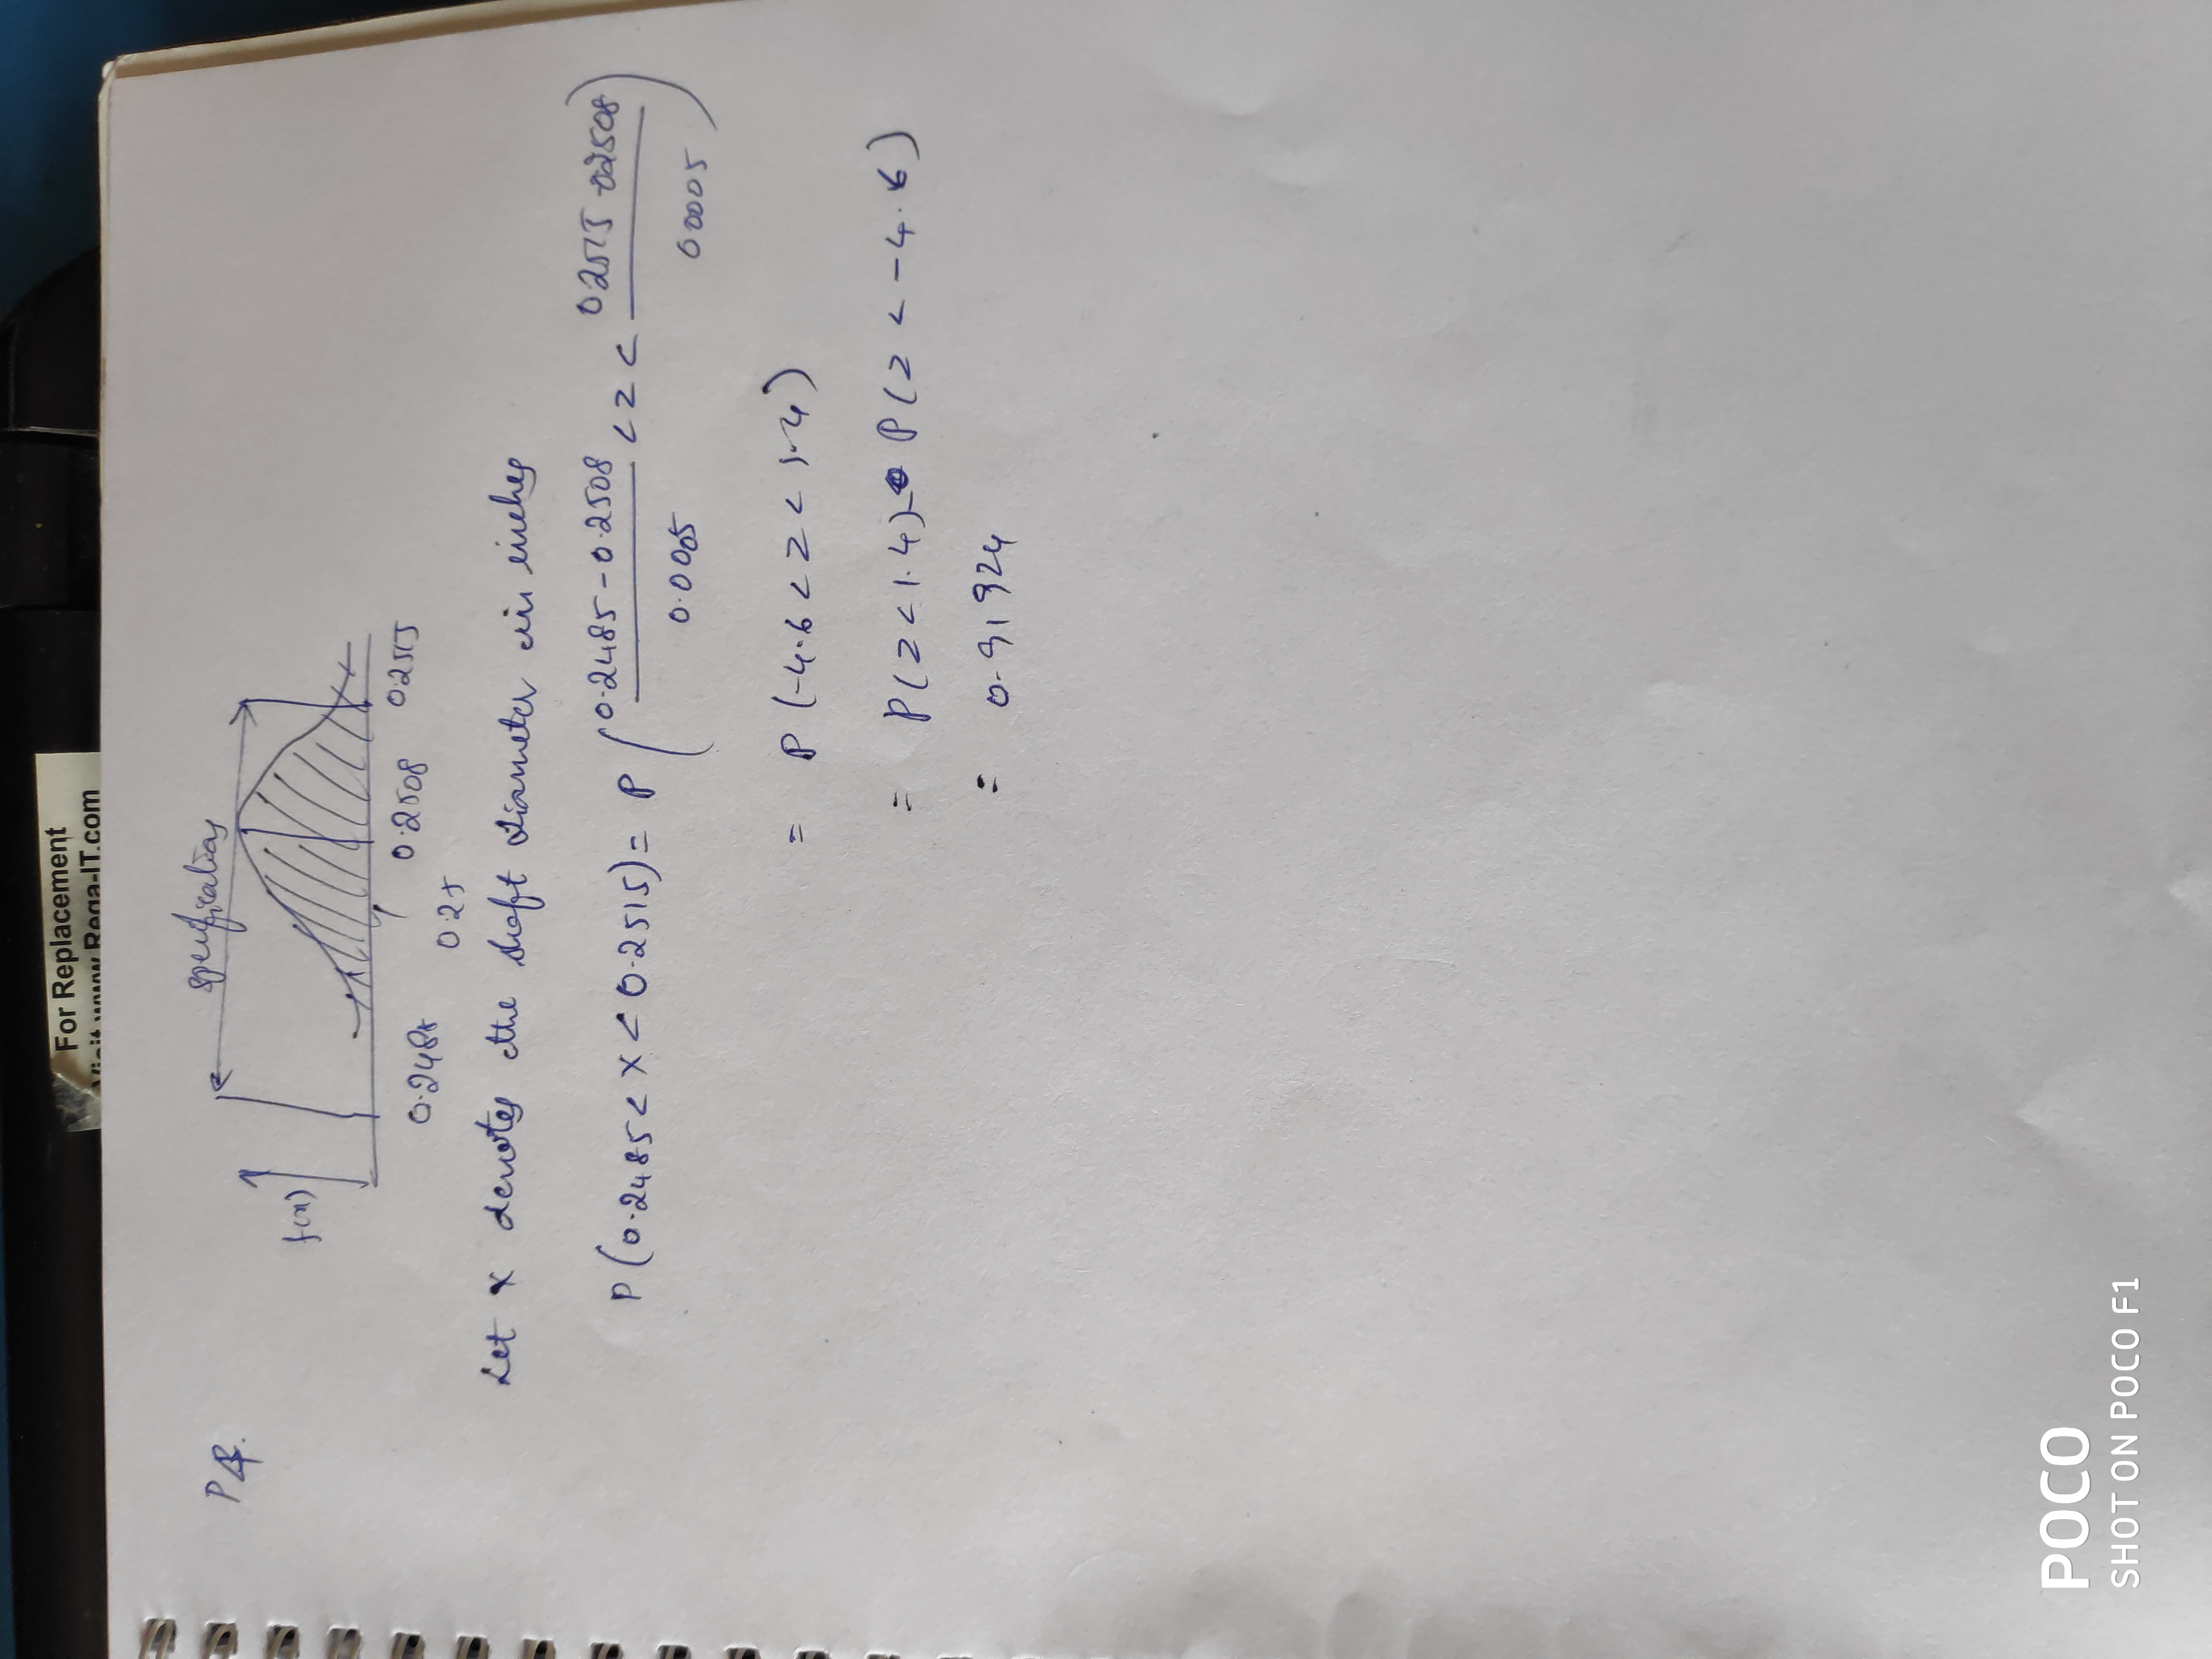 For Replacement
Visit www.Rega-IT.com
P4.
specifications
f(x)
0.2485
0.25
0.2508
0.2515
Let x denotes the shaft diameter in inches
P(0.2485 < x < 0.2515) = P(0.2485 - 0.2508 / 0.0005 < z < 0.2515 - 0.2508 / 0.0005)
= P(-4.6 < z < 1.4)
= P(z < 1.4) - P(z < -4.6)
= 0.91924
POCO
SHOT ON POCO F1